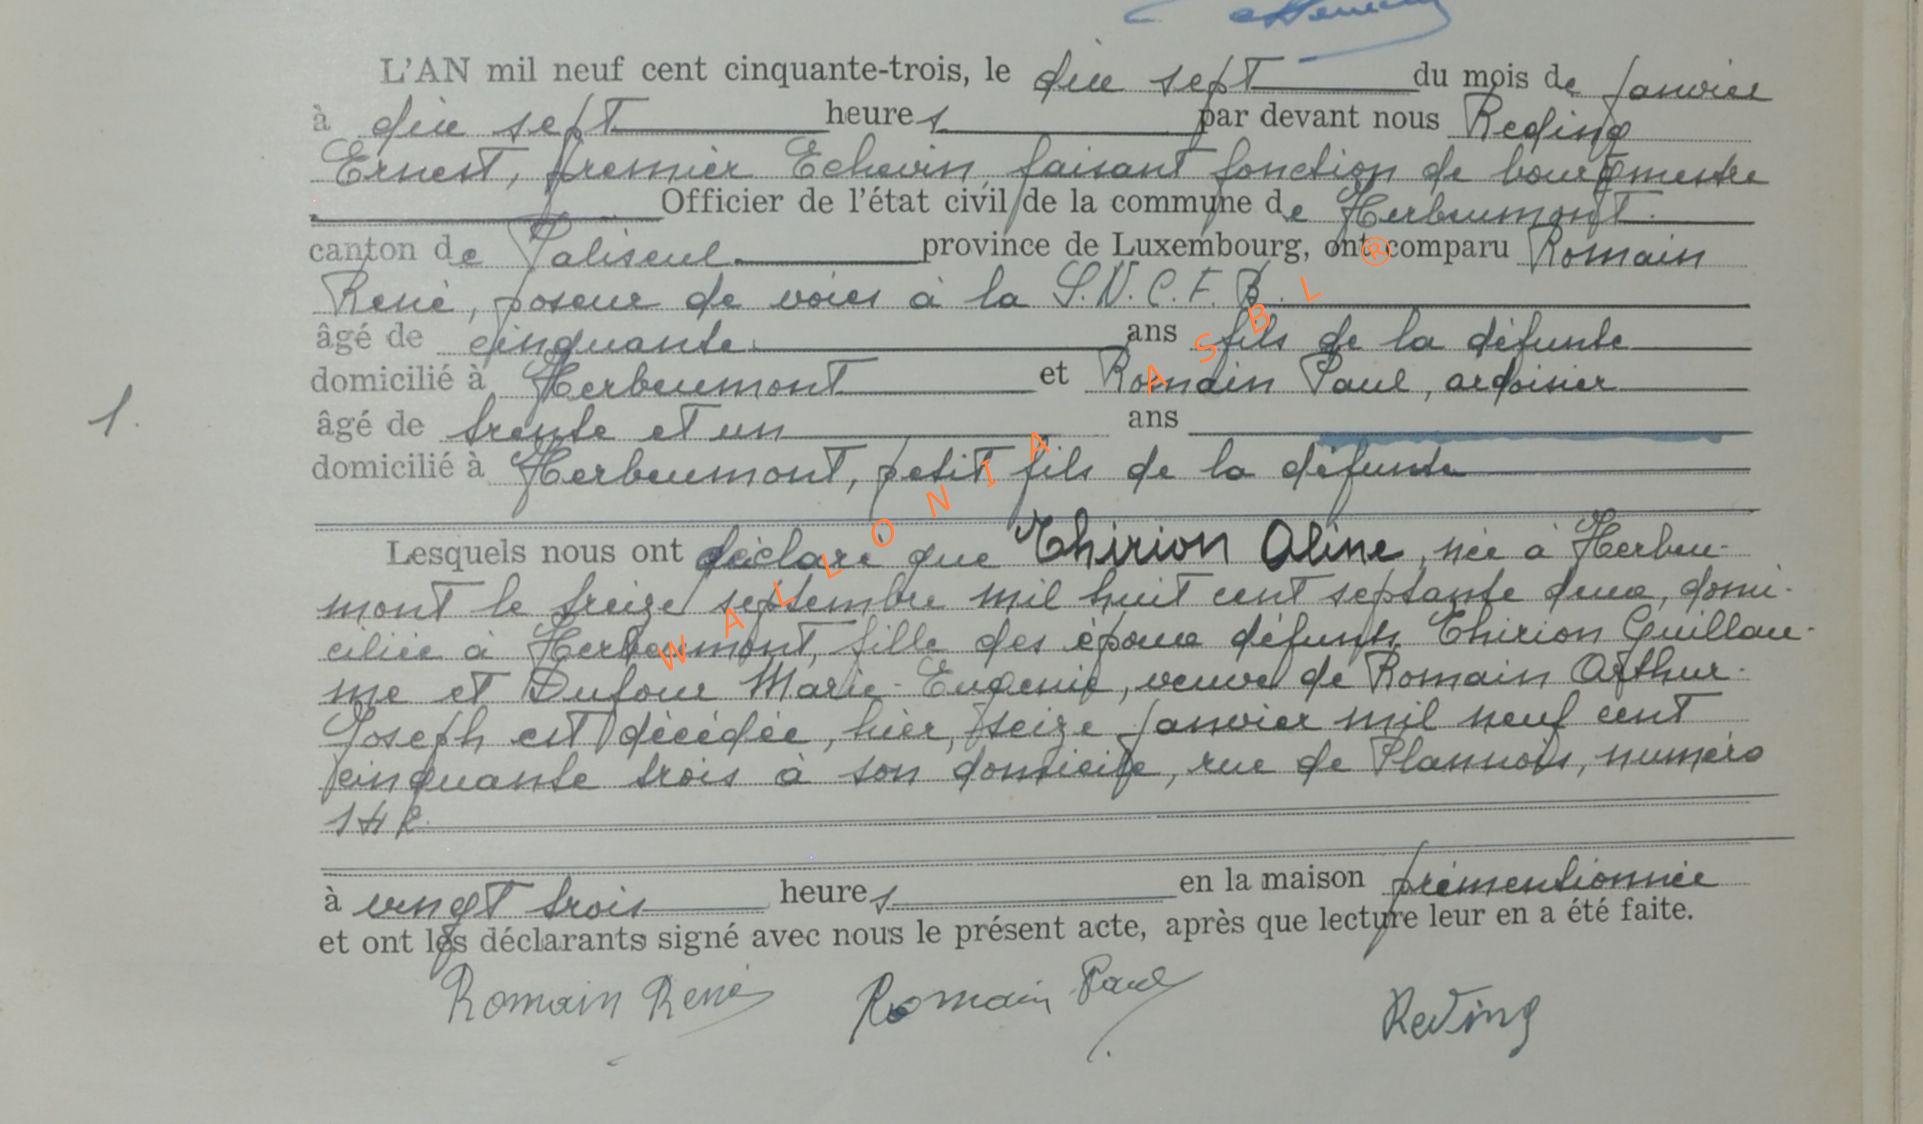 L'AN mil neuf cent cinquante-trois, le dix sept du mois de janvier
à dix sept heures par devant nous Reding
Ernest, premier Echevin, faisant fonction de bourgmestre
Officier de l'état civil de la commune de Herbeumont.
canton de Paliseul province de Luxembourg, ont comparu Romain
René, poseur de voies à la S.N.C.F.B.
âgé de cinquante ans fils de la défunte
domicilié à Herbeumont et Romain Paul, ardoisier
1.
âgé de trente et un ans
domicilié à Herbeumont, petit fils de la défunte
Lesquels nous ont déclaré que Thirion Aline, née à Herbeu-
mont le treize septembre mil huit cent septante deux, domi-
ciliée à Herbeumont, fille des époux défunts Thirion Guillau-
me et Dufour Marie-Eugenie, veuve de Romain Arthur-
Joseph est décédée, hier, seize janvier mil neuf cent
cinquante trois à son domicile, rue de numéro
à vingt trois heures en la maison prémentionnée
et ont les déclarants signé avec nous le présent acte, après que lecture leur en a été faite.
Romain René Romain Paul Reding
WALLONIA ASBL ®